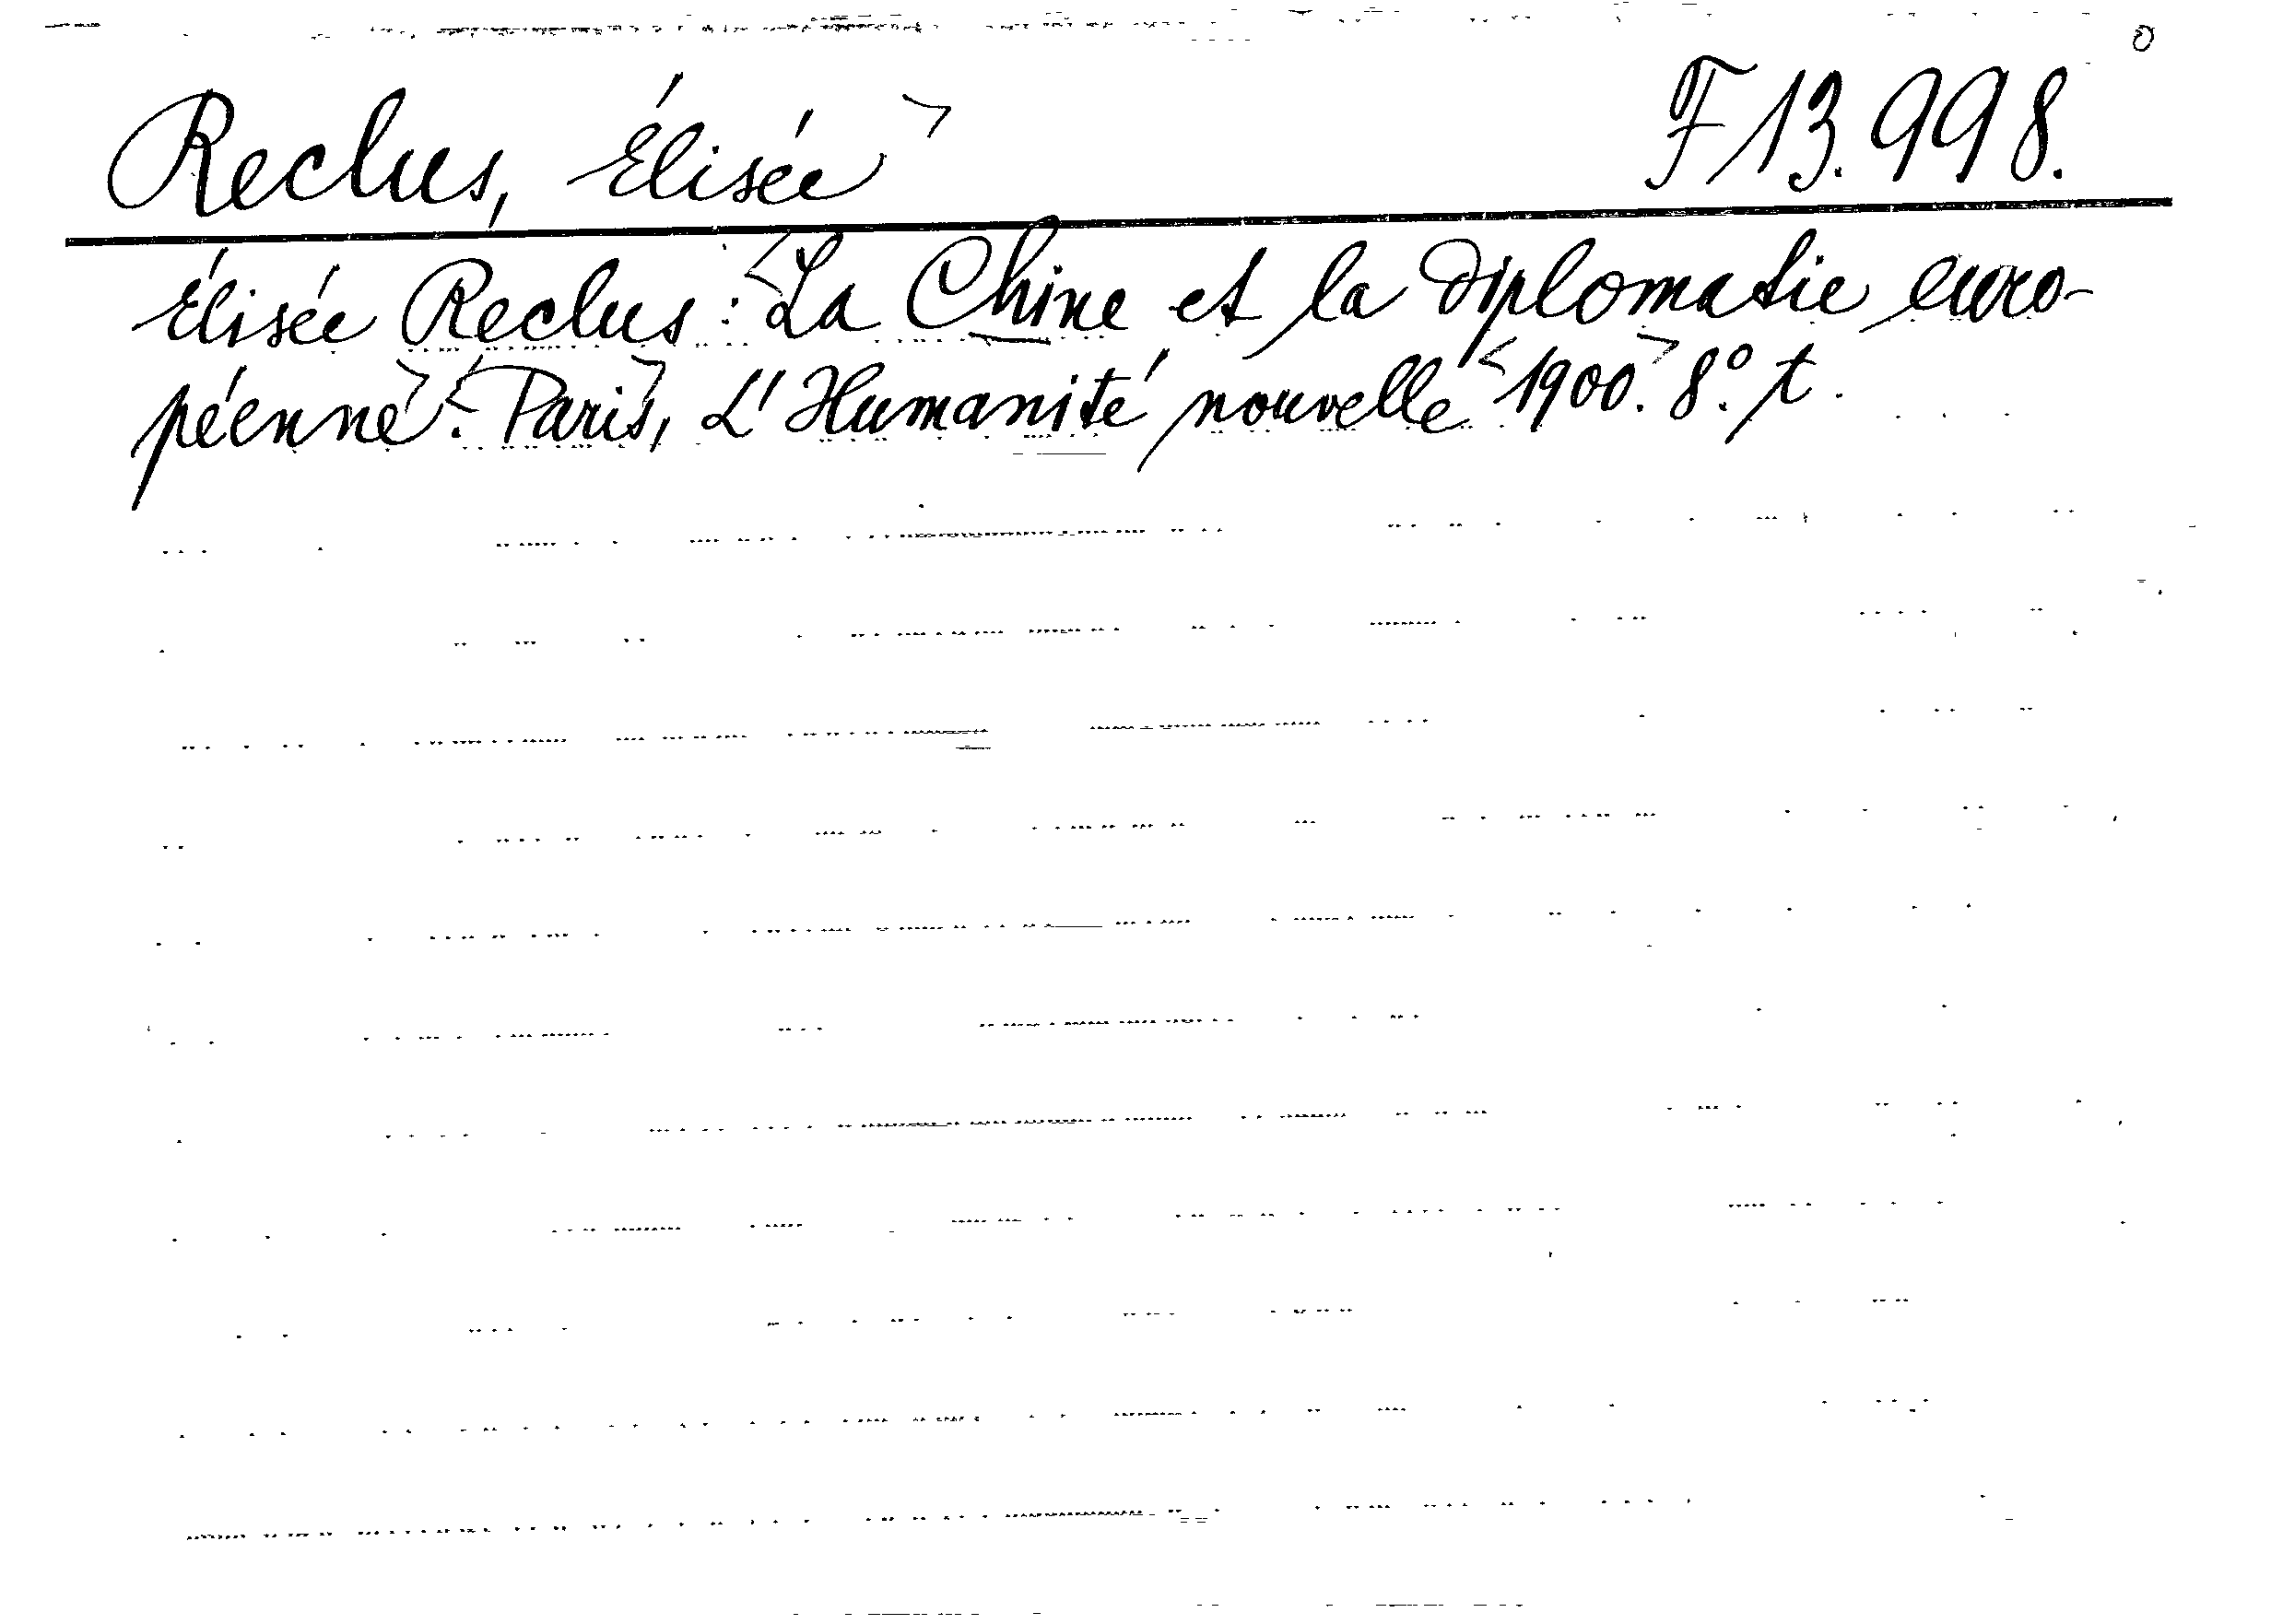 Reclus, Élisée > F 13.998.
Élisée Reclus: <La Chine et la diplomatie euro-
péenne>. <Paris>, L'Humanité nouvelle <1900.> 8.° t.